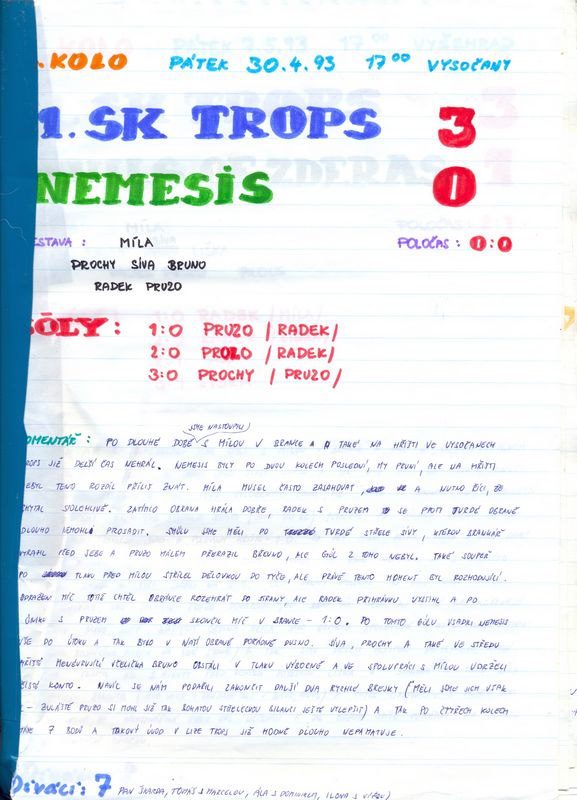 .KOLO PÁTEK 30.4.93 17⁰⁰ VYSOČANY
1. SK TROPS 3
NEMESIS 0
ESTAVA : MÍLA POLOČAS : 0:0
PROCHY SÍVA BRUNO
RADEK PRUZO
GÓLY : 1:0 PRUZO / RADEK /
2:0 PROZO / RADEK /
3:0 PROCHY / PRUZO /
(JSME NASTOUPILI)
OMENTÁŘ : PO DLOUHÉ DOBĚ S MÍLOU V BRANCE A TAKÉ NA HŘIŠTI VE VYSOČANECH
TROPS JIŽ DELŠÍ ČAS NEHRÁL. NEMESIS BYLY PO DVOU KOLECH POSLEDNÍ, MY PRVNÍ, ALE NA HŘIŠTI
EBYL TENTO ROZDÍL PŘÍLIŠ ZNÁT. MÍLA MUSEL ČASTO ZASAHOVAT, A NUTNO ŘÍCI, ŽE
CHYTAL SPOLEHLIVĚ. ZATÍMCO OBRANA HRÁLA DOBŘE, RADEK S PRUZEM SE PROTI TVRDÉ OBRANĚ
DLOUHO NEMOHLI PROSADIT. SMŮLU JSME MĚLI PO TVRDÉ STŘELE SÍVY, KTEROU BRANKÁŘ
VYRAZIL PŘED SEBE A PRUZO MÁLEM PŘERAZIL BRUNO, ALE GÓL Z TOHO NEBYL. TAKÉ SOUPEŘ
PO TLAKU PŘED MÍLOU STŘÍLEL DĚLOVKOU DO TYČE, ALE PRÁVĚ TENTO MOMENT BYL ROZHODUJÍCÍ.
ODRAŽENÝ MÍČ TOTIŽ CHTĚL OBRÁNCE ROZEHRÁT DO STRANY, ALE RADEK PŘIHRÁVKU VYSTIHL A PO
ÚNIKU S PRUZEM SKONČIL MÍČ V BRANCE - 1:0. PO TOMTO GÓLU VSADILI NEMESIS
VŠE DO ÚTOKU A TAK BYLO V NAŠÍ OBRANĚ POŘÁDNĚ DUSNO. SÍVA, PROCHY A TAKÉ VE STŘEDU
HŘIŠTĚ NEÚNAVNÁ VČELIČKA BRUNO OBSTÁLI V TLAKU VÝBORNĚ A VE SPOLUPRÁCI S MÍLOU UDRŽELI
ČISTÉ KONTO. NAVÍC SE NÁM PODAŘILI ZAKONČIT DALŠÍ DVA RYCHLÉ BREJKY (MĚLI JSME JICH VŠAK
- ZVLÁŠTĚ PRUZO SI MOHL JIŽ TAK BOHATOU STŘELECKOU BILANCI JEŠTĚ VYLEPŠIT) A TAK PO ČTYŘECH KOLECH
MÁME 7 BODŮ A TAKOVÝ ÚVOD V LIZE TROPS JIŽ HODNĚ DLOUHO NEPAMATUJE.
Diváci : 7 PAN ŠKARDA, TOMÁŠ S MARCELOU, ÁLA S DOMINIKEM, ILONA S